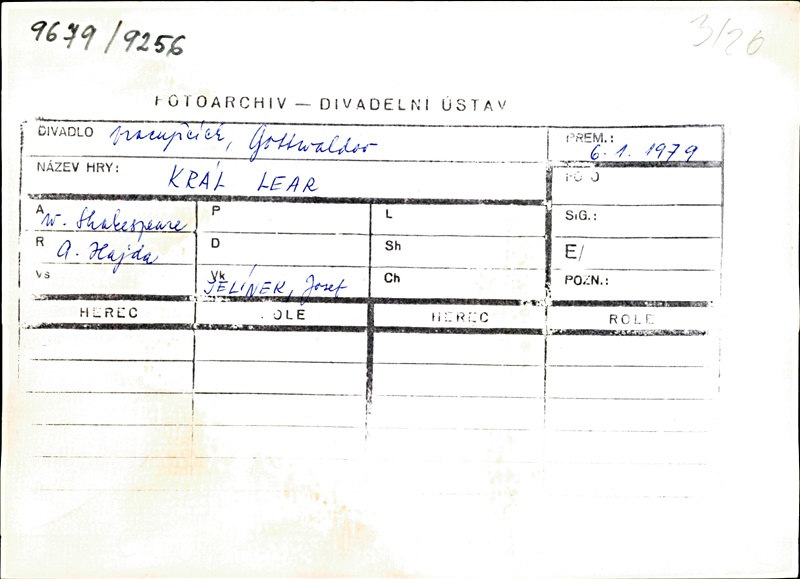 9679/9256
3/26
FOTOARCHIV — DIVADELNÍ ÚSTAV
DIVADLO pracujících, Gottwaldov
PREM.: 6. 1. 1979
NÁZEV HRY: KRÁL LEAR
FOTO
A W. Shakespeare P L SIG.:
R A. Hajda D Sh E/
Vs Vk JELÍNEK, Josef Ch POZN.:
HEREC ROLE HEREC ROLE